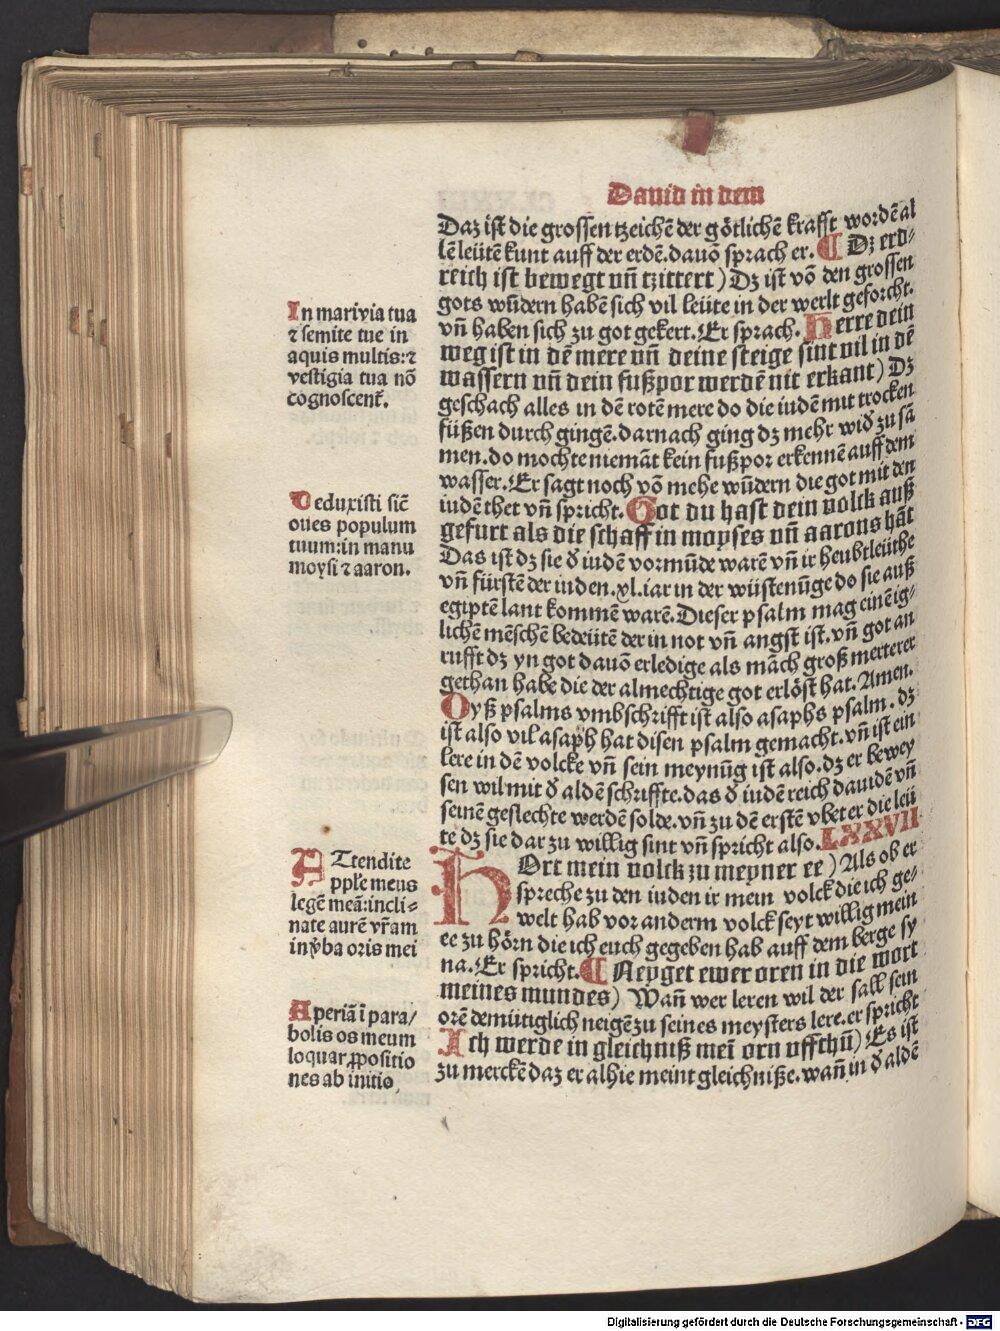 Dauid in dem
Daz ist die grossen tzeichē der götlichē krafft wordē al
lē leütē kunt auff der erdē. dauō sprach er. ¶ Dz erd⸗
reich ist bewegt vn̄ tzittert) Dz ist vō den grossen
gots wūdern habē sich vil leüte in der werlt geforcht.
vn̄ haben sich zu got gekert. Er sprach. Herre dein
weg ist in dē mere vn̄ deine steige sint vil in dē
wassern vn̄ dein fußpor werdē nit erkant) Dz
geschach alles in dē rotē mere do die iudē mit trocken
füßen durch gingē. darnach ging dz mehr wid̕ zu sā
men. do mochte niemāt kein fußpor erkennē auff dem
wasser. Er sagt noch vō mehe wūdern die got mit den
iudē thet vn̄ spricht. Got du hast dein volck auß
gefurt als die schaff in moyses vn̄ aarons hāt
Das ist dz sie d̕ iudē vormūde warē vn̄ ir heubtleüthe
vn̄ fürstē der iuden. xl. iar in der wüstenūge do sie auß
egiptē lant kommē warē. Dieser psalm mag einē ig⸗
lichē mēschē bedeütē der in not vn̄ angst ist. vn̄ got an
rufft dz yn got dauō erledige als māch groß merterer
gethan habe die der almechtige got erlöst hat. Amen.
Dyß psalms vmbschrifft ist also asaphs psalm. dz
ist also vil asaph hat disen psalm gemacht. vn̄ ist ein
lere in dē volcke vn̄ sein meynūg ist also. dz er bewey
sen wil mit d̕ aldē schriffte. das d̕ iudē reich dauidē vn̄
seinē geslechte werdē solde. vn̄ zu dē erstē vbet er die leü
te dz sie dar zu willig sint vn̄ spricht also. LXXVII
Hört mein volck zu meyner ee) Als ob er
spreche zu den iuden ir mein volck die ich ge⸗
welt hab vor anderm volck seyt willig mein
ee zu hörn die ich euch gegeben hab auff dem berge sy
na. Er spricht. ¶ Neyget ewer oren in die wort
meines mundes) Wan̄ wer leren wil der sall sein
orē demütiglich neigē zu seines meysters lere. er spricht
Ich werde in gleichniß mei͞ orn vffthū) Es ist
zu merckē daz er alhie meint gleichniße. wan̄ in d̕ aldē
In mari via tua
⁊ semite tue in
aquis multis: ⁊
vestigia tua nō
cognoscent᷑.
Deduxisti sic̄
oues populum
tuum: in manu
moysi ⁊ aaron.
Attendite
pp̄le meus
legē meā: incli⸗
nate aurē vr̄am
in v̕ba oris mei
Aperiā ī para/
bolis os meum
loquar ꝓpositio
nes ab initio
Digitalisierung gefördert durch die Deutsche Forschungsgemeinschaft - DFG